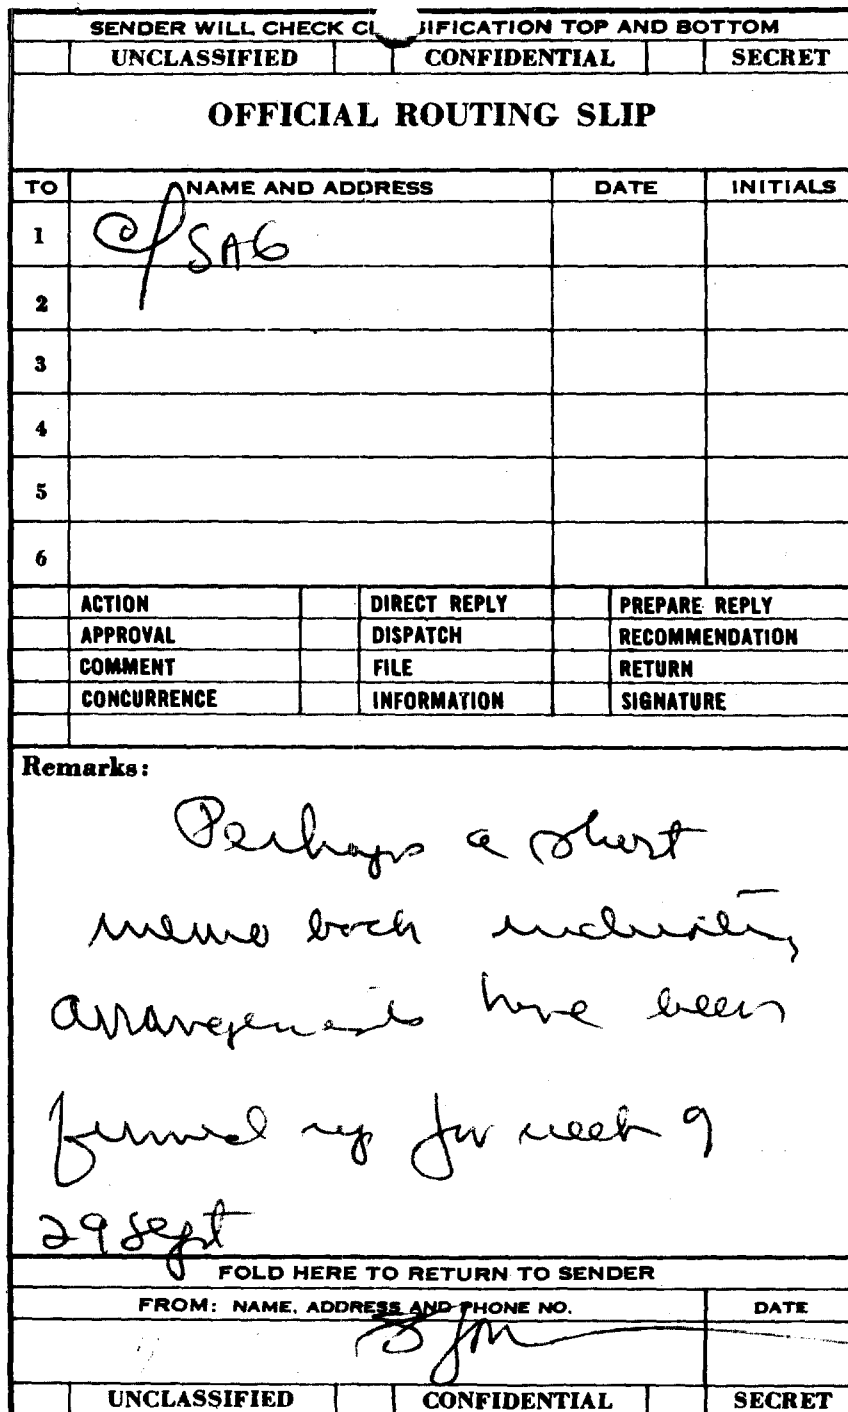 SENDER WILL CHECK CL SIFICATION TOP AND BOTTOM
UNCLASSIFIED CONFIDENTIAL SECRET
OFFICIAL ROUTING SLIP
TO NAME AND ADDRESS DATE INITIALS
1 C/SAG
2
3
4
5
6
ACTION DIRECT REPLY PREPARE REPLY
APPROVAL DISPATCH RECOMMENDATION
COMMENT FILE RETURN
CONCURRENCE INFORMATION SIGNATURE
Remarks:
Perhaps a short
memo back indicating
arrangements have been
firmed up for week of
29 Sept
FOLD HERE TO RETURN TO SENDER
FROM: NAME, ADDRESS AND PHONE NO. DATE
UNCLASSIFIED CONFIDENTIAL SECRET